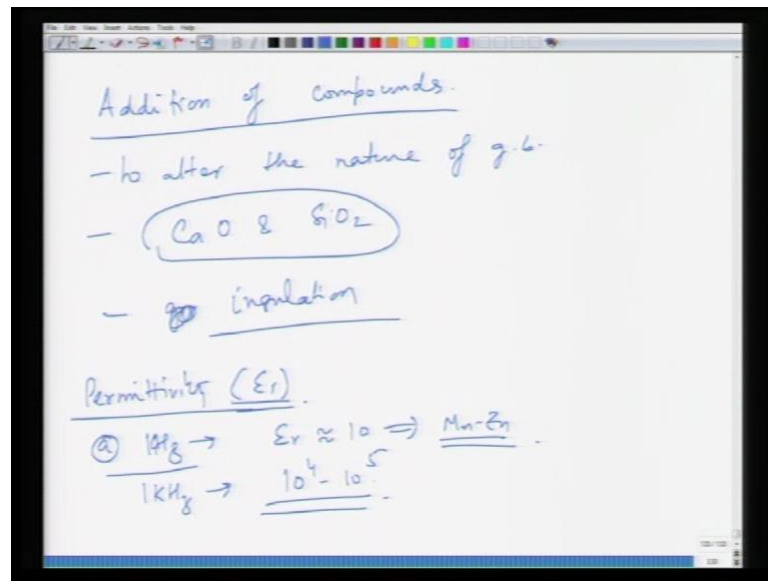 File Edit View Insert Actions Tools Help
Addition of compounds.
- to alter the nature of g.b.
- CaO & SiO2
- insulation
Permittivity (εr).
ⓐ 1Hz → εr ≈ 10 ⇒ Mn-Zn.
1KHz → 10^4 - 10^5.